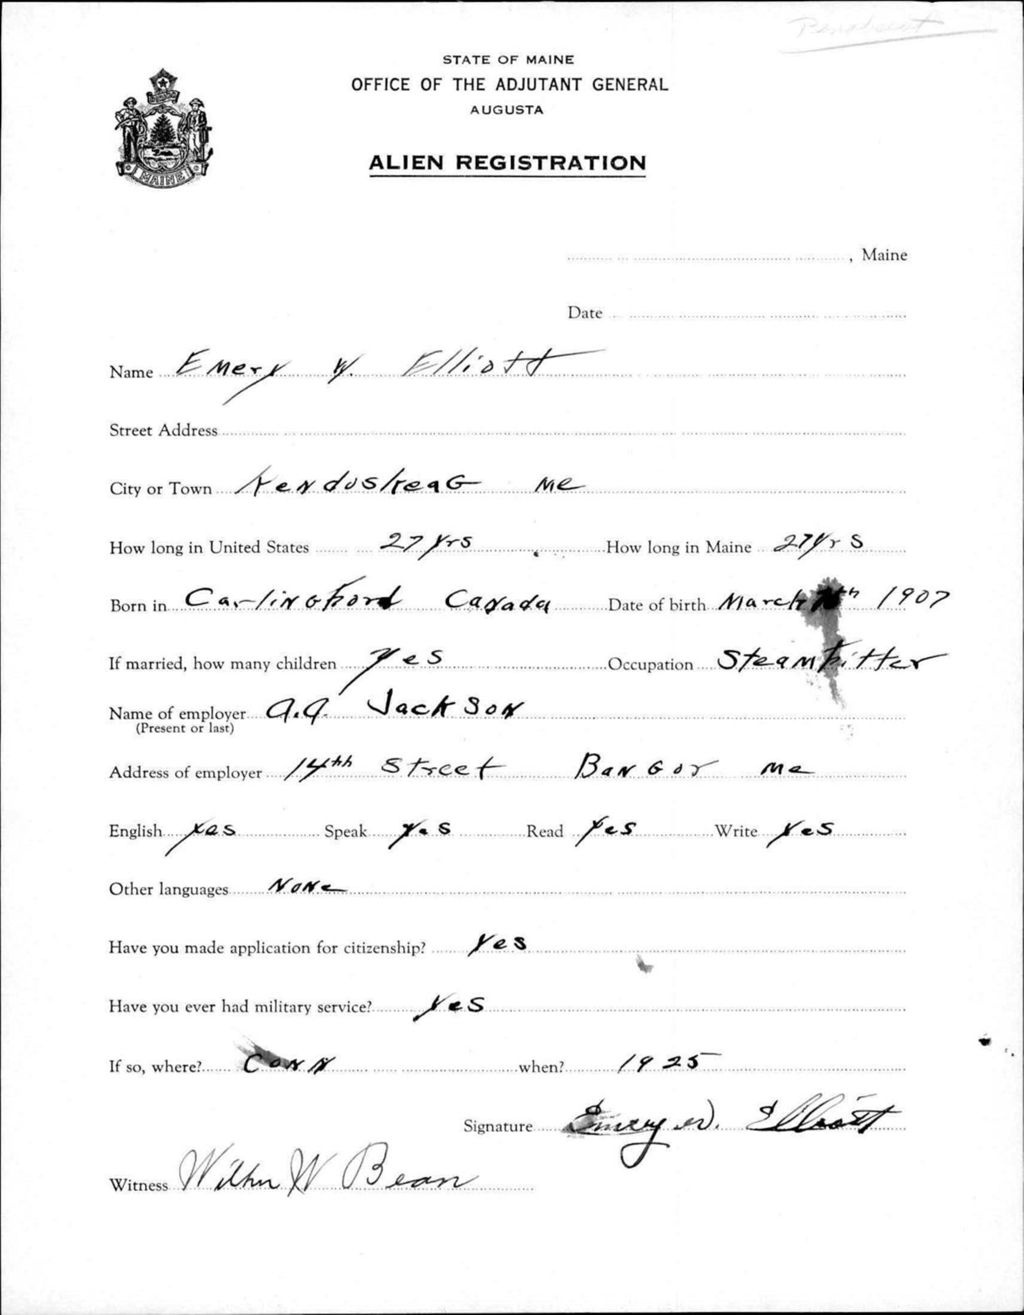 Penobscot
STATE OF MAINE
OFFICE OF THE ADJUTANT GENERAL
AUGUSTA
ALIEN REGISTRATION
MAINE
, Maine
Date
Name Emery W. Elliott
Street Address
City or Town Kenduskeag Me
How long in United States 27 yrs How long in Maine 27 yrs
Born in Carlingford Canada Date of birth March th 1907
If married, how many children Yes Occupation Steamfitter
Name of employer A.A. Jackson
(Present or last)
Address of employer 14th Street Bangor Me
English Yes Speak Yes Read Yes Write Yes
Other languages None
Have you made application for citizenship? Yes
Have you ever had military service? Yes
If so, where? Conn when? 1925
Signature Emery W. Elliott
Witness Wilbur W Bean